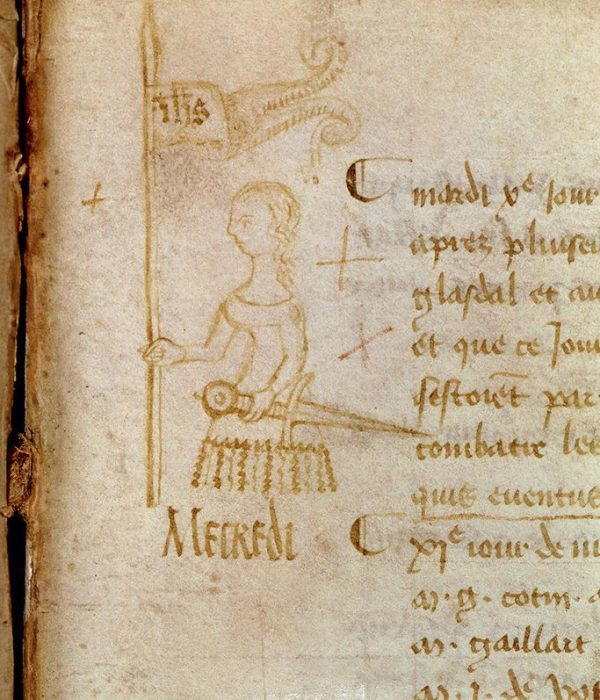 ihs
mardi xe jour
aprez pluiseu
glasdal et au
et que ce jour
sestoiēt par
combatre les
quis eventus
Mercredi
xje iour de m
m. g. cotin.
m. gaillart
m. J. de